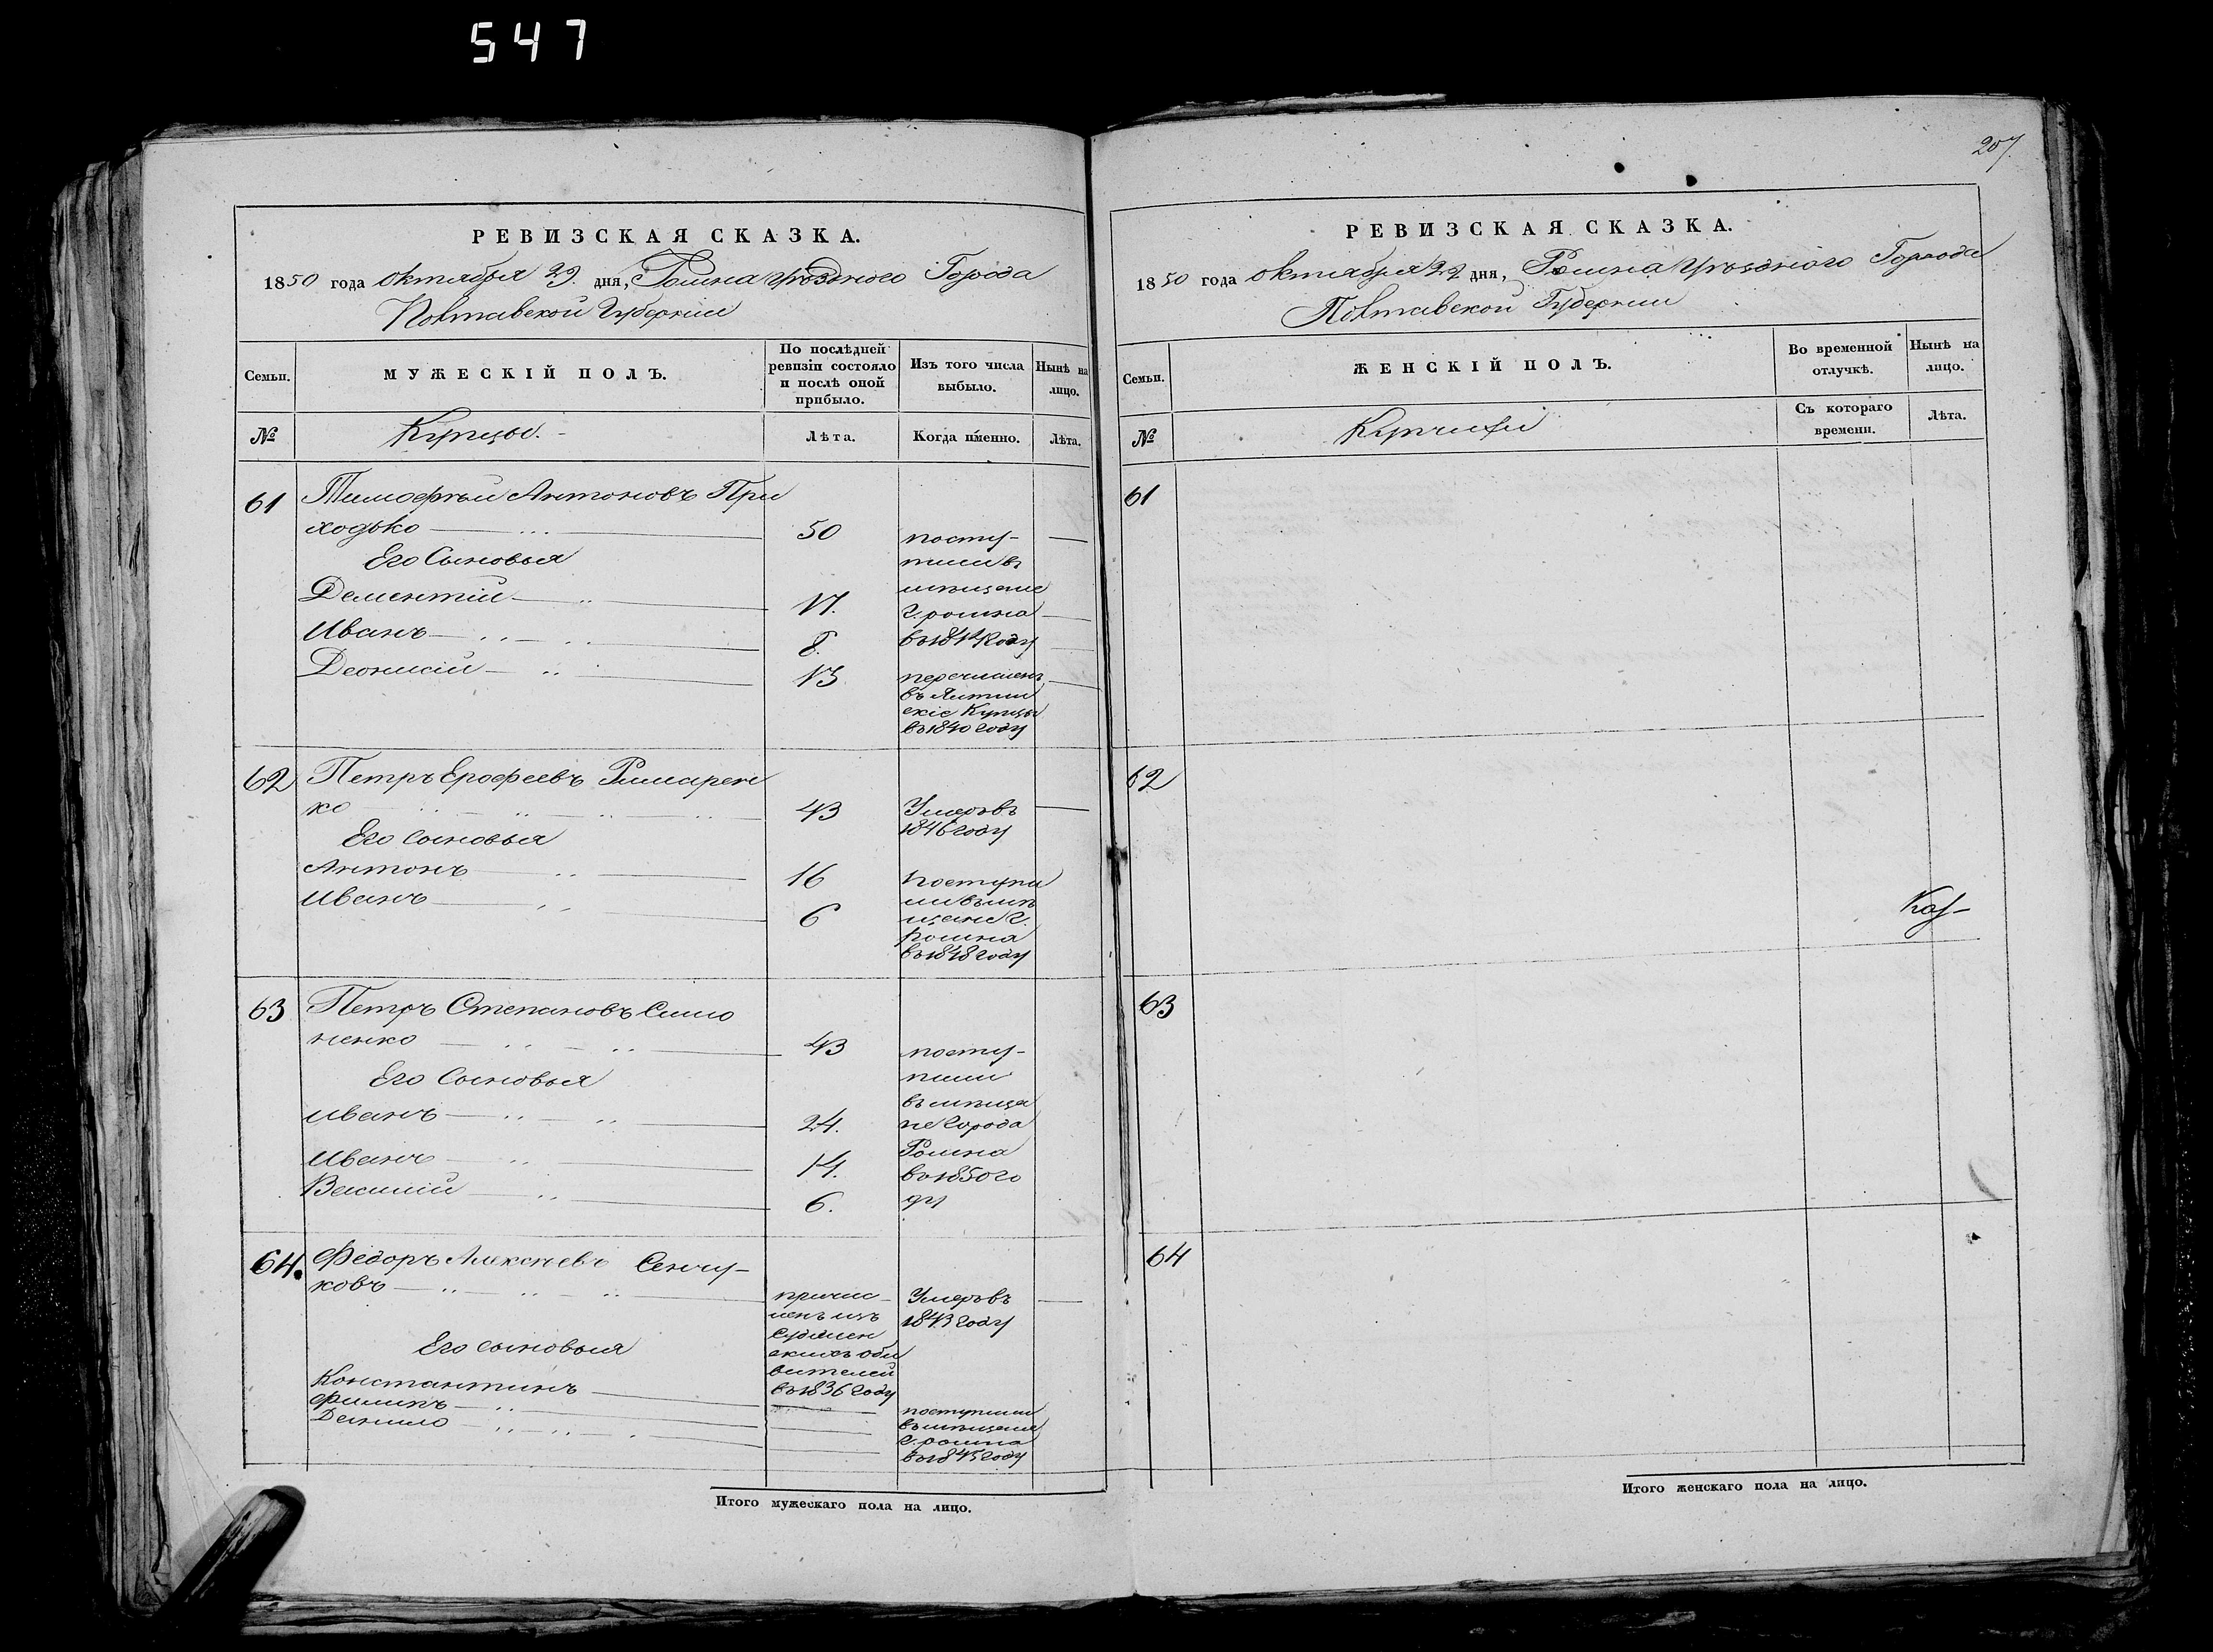 547
РЕВИЗСКАЯ СКАЗКА.
1850 года Октября 29. дня, Ромна Уѣзднаго Города
Полтавской Губернии
Семьи.
МУЖЕСКІЙ ПОЛЪ.
По послѣдней
ревизіи состояло
и послѣ оной
прибыло.
Изъ того числа
выбыло.
Нынѣ на
лицо.
№
Купцы.
Лѣта.
Когда именно.
Лѣта.
61
Тимофѣй Антоновъ При
ходько
50
посту-
пили въ
Его Сыновья
мѣщане
Дементій
17.
г. ромна
Иванъ
8.
Деонисій
13
перечисленъ
скіе Купцы
въ 1840 году
62
Петръ Ерофеевъ Римарен
ко
43
Умеръ въ
1846 году
Его сыновья
Антонъ
16
Поступи
ли въ мѣ
Иванъ
6
щане г.
Ромна
въ 1848 году
63
Петръ Степановъ Симо
ненко
43
посту-
пили
Его Сыновья
въ мѣща
Иванъ
24.
не города
Ромна
Иванъ
14.
въ 1850 го
Василій
6.
ду
64.
Федоръ Алексѣевъ Сенчу-
ковъ
причис
ленъ изъ
вителей
въ 1836 году
Умеръ въ
1843 году
Его сыновья
Константинъ
Филипъ
Данило
поступили
въ мѣщане
г. ромна
въ 1845 году
Итого мужескаго пола на лицо.
207.
РЕВИЗСКАЯ СКАЗКА.
1850 года Октября 29 дня, Ромна Уѣзднаго Города
Полтавской Губернии
Семьи.
ЖЕНСКІЙ ПОЛЪ.
Во временной
отлучкѣ.
Нынѣ на
лицо.
№
Купчихи
Съ котораго
времени.
Лѣта.
61
62
63
64
Итого женскаго пола на лицо.